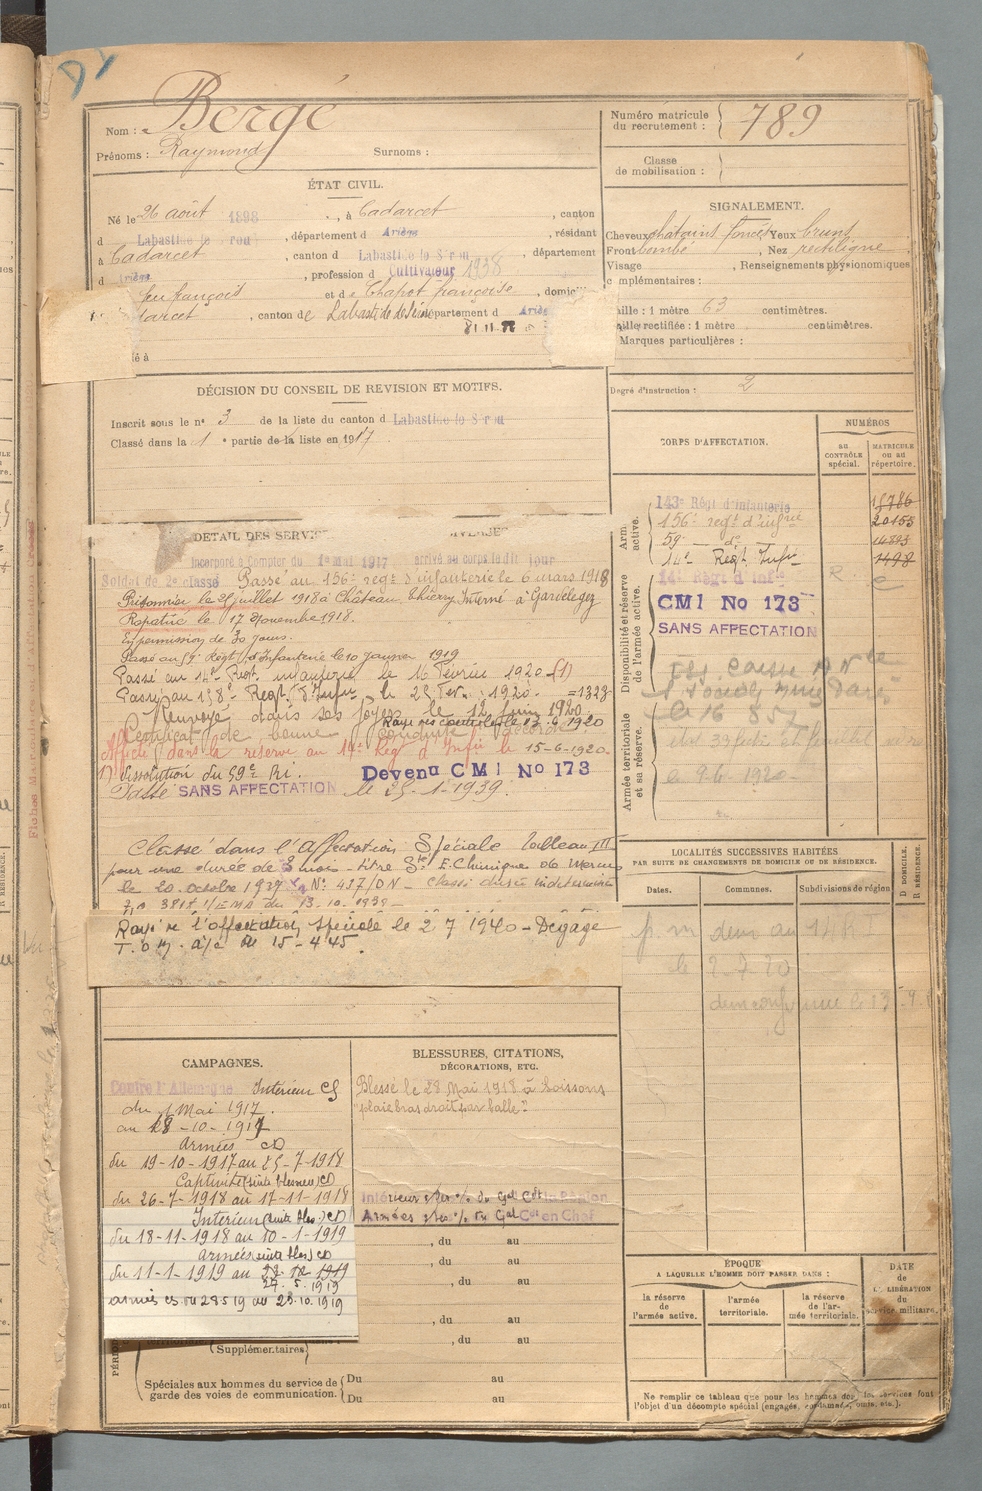 Nom : Bergé
Prénoms : Raymond Surnoms :
Numéro matricule du recrutement : 789
Classe de mobilisation :
ÉTAT CIVIL.
Né le 26 août 1898, à Cadarcet, canton
d Labastide de Sérou, département d Ariège, résidant
à Cadarcet, canton d Labastide de Sérou, département
d Ariège, profession d Cultivateur 1938
feu françois et de Chapot françoise, domici
darcet, canton de Labastide de Sérou département d Ariè
31.11.
é à
SIGNALEMENT.
Cheveux chatains foncés Yeux bruns
Front bombé, Nez rectiligne
Visage , Renseignements physionomiques
complémentaires :
Taille : 1 mètre 63 centimètres.
Taille rectifiée : 1 mètre centimètres.
Marques particulières :
Degré d'instruction : 2
DÉCISION DU CONSEIL DE REVISION ET MOTIFS.
Inscrit sous le n° 3 de la liste du canton d Labastide de Sérou
Classé dans la 1e partie de la liste en 1917
DÉTAIL DES SERVIC VERSES
Incorporé à compter du 1er mai 1917 arrivé au corps le dit jour
Soldat de 2e classe Passé au 156e regt d'infanterie le 6 mars 1918
Prisonnier le 25 juillet 1918 à Château Thierry Interné à Gardelegez
Rapatrié le 17 Novembre 1918.
En permission de 30 jours.
Passé au 59e Régt d'Infanterie le 10 janvier 1919
Passé au 14e Regt infanterie le 16 Février 1920 (1)
Passé au 138e Regt d'Infie le 25 Fer. 1920. =1323
Renvoyé dans ses foyers le 12 Juin 1920.
Rayé des contrôles le 13.6.1920
Certificat de bonne conduite accordé.
Affecté dans la réserve au 14e Regt d'Infie le 15-6-1920.
1) dissolution du 59e Ri. Devenu CMI No 173
Passé SANS AFFECTATION le 25-1-1939.
Classé dans l'Affectation Spéciale Tableau III
pour une durée de 3 mois - titre Sté E. Chimique de Mercus
le 20 octobre 1939 N° 437/DN - Classé durée indéterminée
3818 1/EMA du 13.10.1939-
Rayé de l'affectation Spéciale le 2 7 1940 - Dégagé
T.O.M. a/c de 15-4 45.
CORPS D'AFFECTATION.
NUMÉROS
au CONTRÔLE spécial.
MATRICULE ou au répertoire.
Arm. active.
143e Régt d'infanterie 15786
156e regt d'infrie 20153
59e — do — 14893
14e Regt Infie 1498
Disponibilité et réserve de l'armée active.
14e Régt d'Infie R. C
CMI No 173
SANS AFFECTATION
Armée territoriale et sa réserve.
le 16 857
le 26 1920
LOCALITÉS SUCCESSIVES HABITÉES
PAR SUITE DE CHANGEMENTS DE DOMICILE OU DE RÉSIDENCE.
Dates. Communes. Subdivisions de région D DOMICILE. R RÉSIDENCE.
p. m dem au 14e R I
le 2-7-20
CAMPAGNES.
Contre l'Allemagne Intérieur CS
du 1 Mai 1917.
au 18-10-1917
Armées CD
du 19-10-1917 au 25-7-1918
Captivité (suite blessure) CD
du 26-7-1918 au 17-11-1918
Intérieur (suite bles.) CD
du 18-11-1918 au 10-1-1919
armées (suite bles) CD
du 11-1-1919 au 27.5.1919
armées CS du 28 5 19 au 23.10.1919
BLESSURES, CITATIONS,
DÉCORATIONS, ETC.
Blessé le 28 Mai 1918 à Soissons
"plaie bras droit par balle"
Intérieur du Gal Ct la Région
Armées du Gal Ct en Chef
, du au
, du au
, du au
, du au
, du au
(Supplémentaires
Spéciales aux hommes du service de
garde des voies de communication.
Du au
Du au
ÉPOQUE
A LAQUELLE L'HOMME DOIT PASSER DANS :
la réserve de l'armée active.
l'armée territoriale.
la réserve de l'armée territoriale.
DATE de LIBÉRATION du service militaire.
Ne remplir ce tableau que pour les hommes dont les services font
l'objet d'un décompte spécial (engagés, condamnés, omis, etc.).